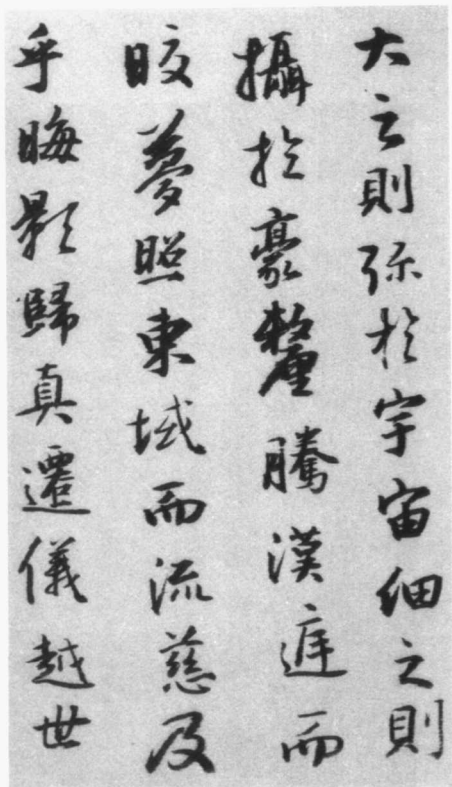 大之則弥於宇宙細之則
攝於豪釐騰漢遅而
晈夢照東域而流慈及
乎晦影歸真遷儀越世